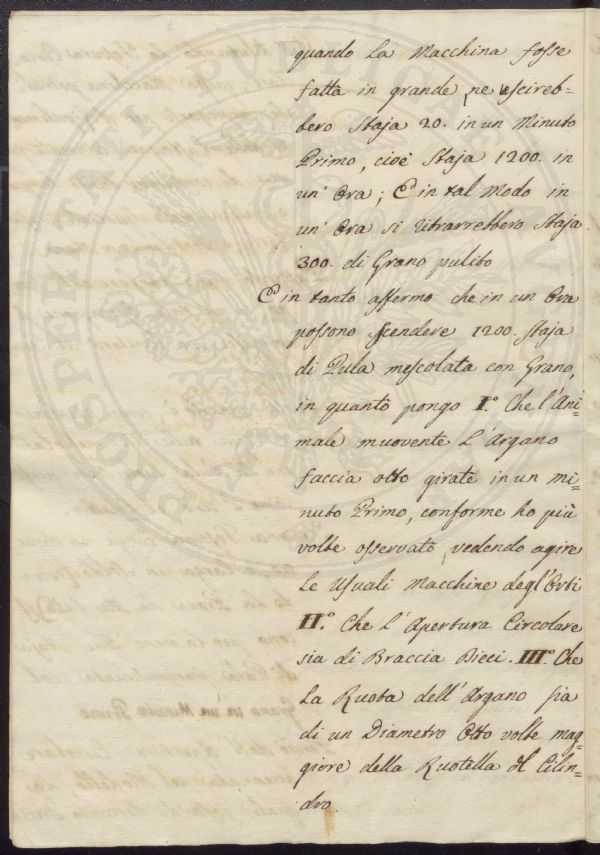 quando La Macchina fosse
fatta in grande, ne uscireb=
bero Staja 20. in un Minuto
Primo, cioè Staja 1200. in
un' Ora; E in tal Modo in
un' Ora si ritrarrebbero Staja
300. di Grano pulito
E in tanto affermo che in un Ora
possono scendere 1200. Staja
di Pula mescolata con Grano,
in quanto pongo I.° Che l'Ani=
male muovente L'Argano
faccia otto girate in un mi=
nuto Primo, conforme ho più
volte osservato, vedendo agire
Le Usuali Macchine degl'Orti
II.° Che L'Apertura Circolare
sia di Braccia Dieci. III.° Che
La Ruota dell'Argano sia
di un Diametro Otto volte mag=
giore della Ruotella del Cilin=
dro.
PROSPERITÀ
PVBLICAE